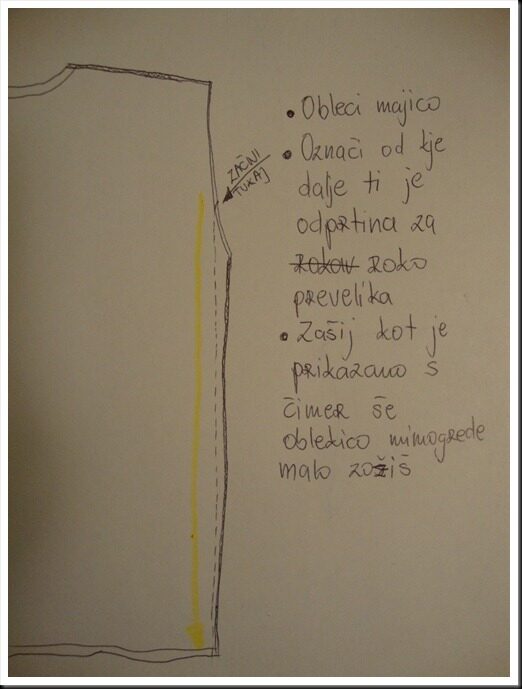 ZAČNI
TUKAJ
• Obleci majico
• Označi od kje
dalje ti je
odprtina za
rokav roko
prevelika
• Zašij kot je
prikazano s
čimer še
oblekico mimogrede
malo zožiš